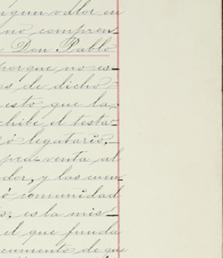 ngun valor en
no compren_
Don Pablo
porque no es_
es de dicho
esto que la
chibe el testa_
ó legatario.
pra-venta al
dor, y las cuen_
ó comunidad
s: es la mis_
el que funda
cumento de que